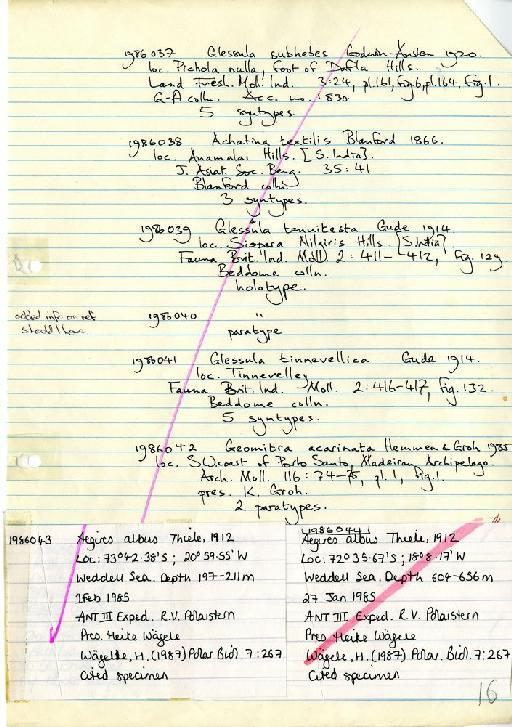 1986037 Glessula subhebes Godwin-Austen 1920
loc. Pichola nulla, foot of Dafla Hills.
Land Fresh. Mol. Ind. 3:24, pl.161, fig.6, pl.164, fig.1.
G-A colln. Acc. no. 830
5 syntypes.
1986038 Achatina textilis Blanford 1866.
loc. Anamalai Hills. [S. India].
J. Asiat. Soc. Beng. 35:41
Blanford colln.
3 syntypes.
1986039 Glessula tenuitesta Gude 1914.
loc. Sispara Nilgiris Hills. [S. India]
Fauna Brit. Ind. Moll 2:411-412, fig. 129.
Beddome colln.
holotype.
added info on ref
should have
1986040 "
paratype
1986041 Glessula tinnevellica Gude 1914.
loc. Tinnevelley
Fauna Brit. Ind. Moll. 2:416-417, fig. 132.
Beddome colln.
5 syntypes.
1986042 Geomitra acarinata Hemmen & Groh 1985
loc. SW coast of Porto Santo, Madeiran Archipelago.
Arch. Moll. 116:74-75, pl.1, fig.1.
pres. K. Groh.
2 paratypes.
1986043 Aegires albus Thiele, 1912
Loc: 73°42.38'S; 20°59.55'W
Weddell Sea. Depth 197-211m
1 Feb 1985
ANT III Exped. R.V. Polarstern
Pres. Heike Wägele
Wägele, H. (1987) Polar Biol. 7:267
Cited specimen
1986044
Aegires albus Thiele, 1912
Loc: 72°35.67'S; 18°8.17'W
Weddell Sea. Depth 604-656m
27 Jan 1985
ANT III Exped. R.V. Polarstern
Pres Heike Wägele
Wägele, H. (1987) Polar Biol. 7:267
Cited specimen
16